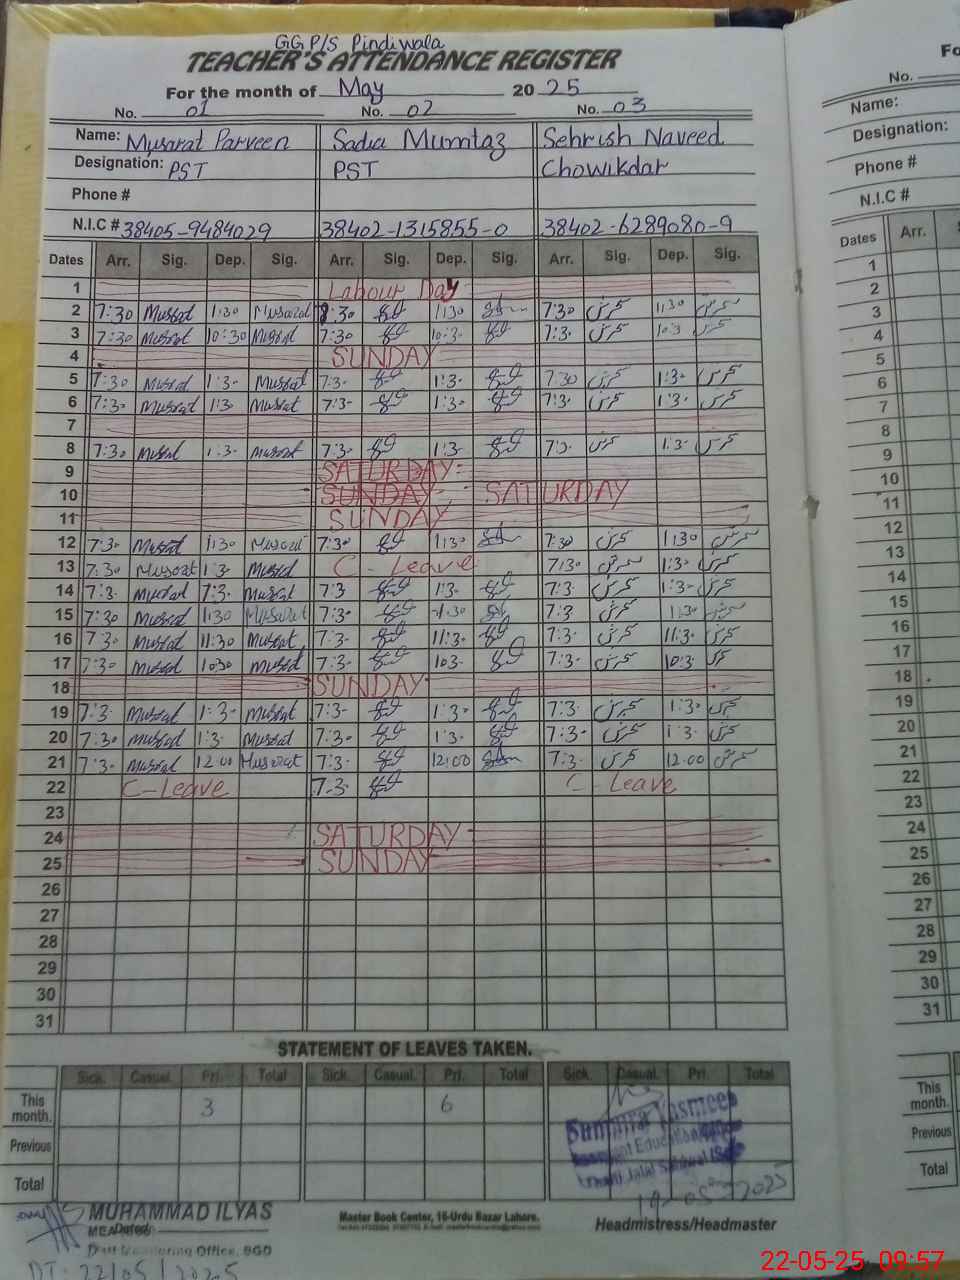 GGP/S Pindiwala
TEACHER'S ATTENDANCE REGISTER
For the month of May 2025
No. 01 No. 02 No. 03
Name: Musarat Parveen Sadia Mumtaz Sehrish Naveed
Designation: PST PST Chowikdar
Phone #
N.I.C # 38405-9484029 38402-1315855-0 38402-6289080-9
Dates Arr. Sig. Dep. Sig. Arr. Sig. Dep. Sig. Arr. Sig. Dep. Sig.
1 Labour Day
2 7:30 Musrat 1:30 Musarat 8:30 1:30 7:30 1:30
3 7:30 Musrat 10:30 Musrat 7:30 10:3- 7:3- 10:3
4 SUNDAY
5 7:30 Musrat 1:3- Musrat 7:3- 1:3- 7:30 1:3-
6 7:3- Musrat 1:3- Musrat 7:3- 1:3- 7:3- 1:3-
7
8 7:3- Musrat 1:3- Musrat 7:3- 1:3- 7:3- 1:3-
9 SATURDAY
10 SUNDAY SATURDAY
11 SUNDAY
12 7:3- Musrat 1:30 Musarat 7:30 1:30 7:30 1:30
13 7:30 Musrat 1:3- Musrat C-Leave 7:30 1:3-
14 7:3- Musrat 7:3- Musrat 7:3 1:3- 7:3- 1:3-
15 7:30 Musrat 1:30 Musarat 7:3- 1:30 7:3 1:30
16 7:30 Musrat 11:30 Musrat 7:3- 11:3- 7:3- 11:3-
17 7:30 Musrat 10:30 Musrat 7:3- 103- 7:3- 10:3-
18 SUNDAY
19 7:3- Musrat 1:3- Musrat 7:3- 1:3- 7:3- 1:3-
20 7:30 Musrat 1:3- Musrat 7:3- 1:3- 7:3- 1:3-
21 7:3- Musrat 12:00 Musarat 7:3- 12:00 7:3- 12:00
22 C-Leave 7:3- C-Leave
23
24 SATURDAY
25 SUNDAY
26
27
28
29
30
31
STATEMENT OF LEAVES TAKEN.
Sick. Casual. Pri. Total Sick. Casual. Pri. Total Sick. Casual. Pri. Total
This month. 3 6
Previous
Total
19-05-2025
MUHAMMAD ILYAS
MEA
Monitoring Office, SGD
DT: 22/05/2025
Master Book Center, 16-Urdu Bazar Lahore.
Headmistress/Headmaster
Fo
No.
Name:
Designation:
Phone #
N.I.C #
Dates Arr.
1
2
3
4
5
6
7
8
9
10
11
12
13
14
15
16
17
18
19
20
21
22
23
24
25
26
27
28
29
30
31
This month.
Previous
Total
22-05-25 09:57